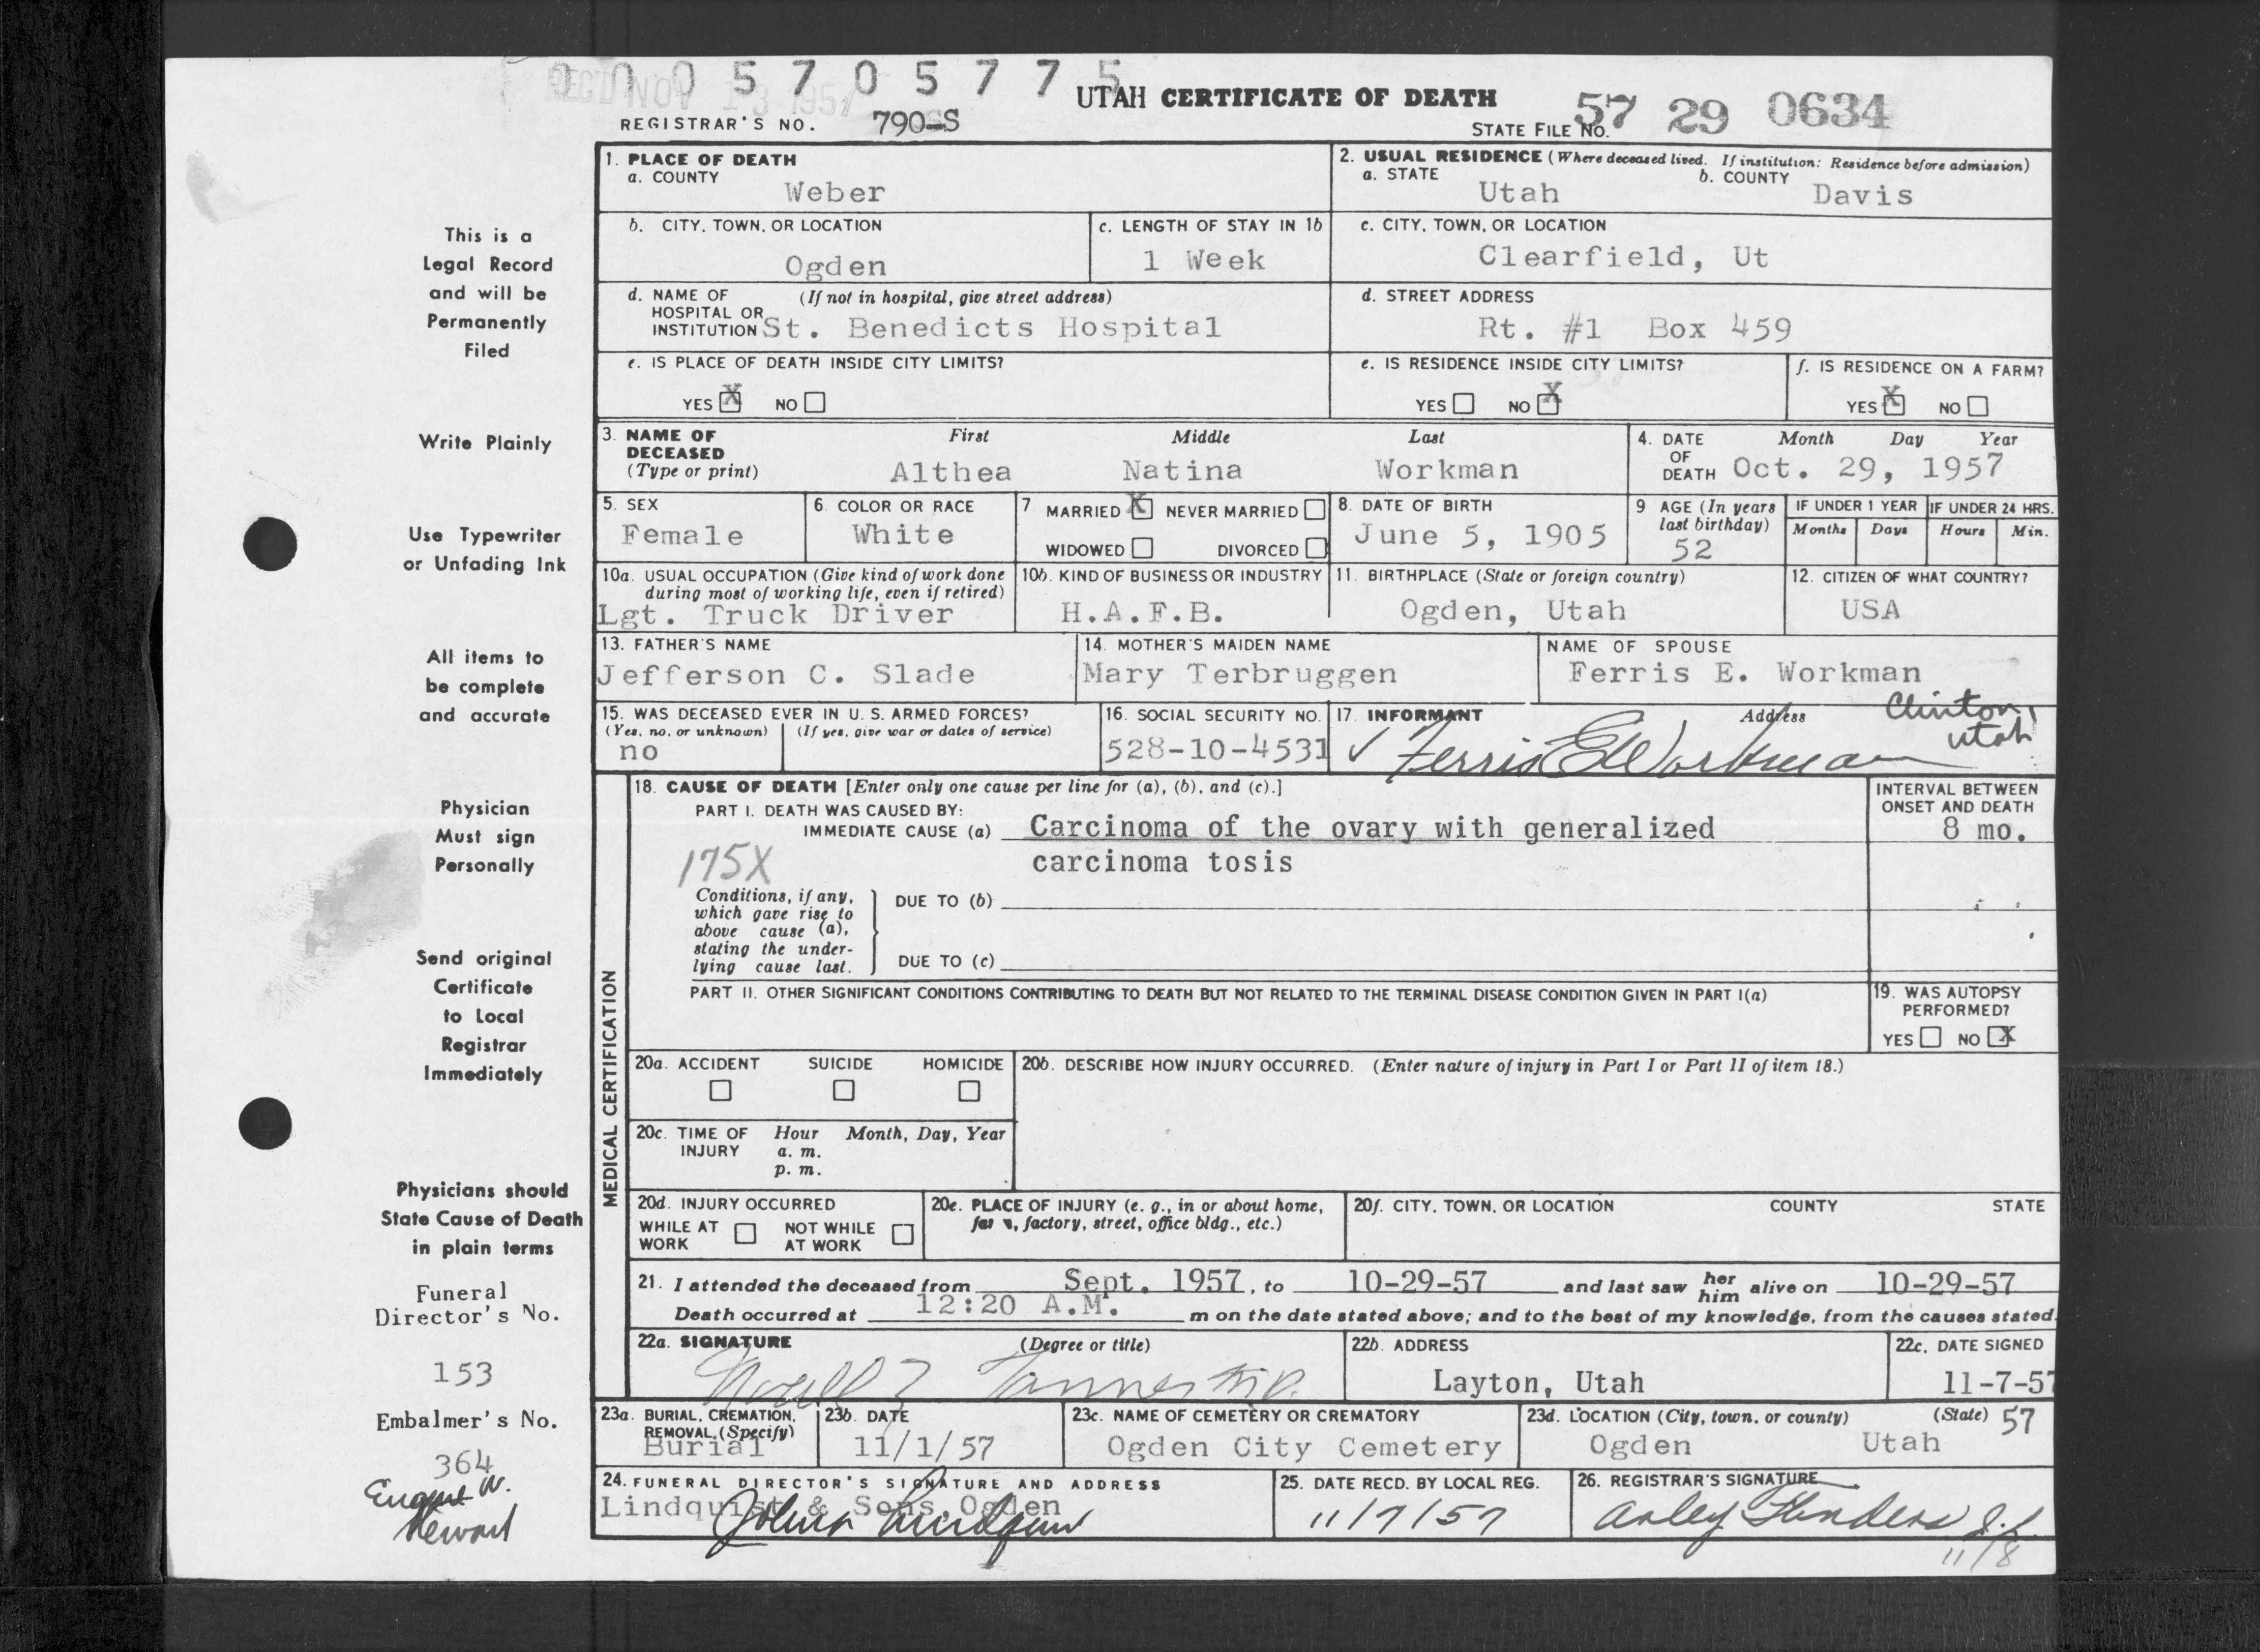 0 0 0 5 7 0 5 7 7 5
REC'D NOV 13 1957
UTAH CERTIFICATE OF DEATH
REGISTRAR'S NO. 790-S
STATE FILE NO. 57 29 0634
This is a
Legal Record
and will be
Permanently
Filed
Write Plainly
Use Typewriter
or Unfading Ink
All items to
be complete
and accurate
Physician
Must sign
Personally
Send original
Certificate
to Local
Registrar
Immediately
Physicians should
State Cause of Death
in plain terms
Funeral
Director's No.
153
Embalmer's No.
364
Eugene W.
Stewart
1. PLACE OF DEATH
a. COUNTY
Weber
2. USUAL RESIDENCE (Where deceased lived. If institution: Residence before admission)
a. STATE b. COUNTY
Utah Davis
b. CITY, TOWN, OR LOCATION
Ogden
c. LENGTH OF STAY IN 1b
1 Week
c. CITY, TOWN, OR LOCATION
Clearfield, Ut
d. NAME OF (If not in hospital, give street address)
HOSPITAL OR
INSTITUTION St. Benedicts Hospital
d. STREET ADDRESS
Rt. #1 Box 459
e. IS PLACE OF DEATH INSIDE CITY LIMITS?
YES X NO
e. IS RESIDENCE INSIDE CITY LIMITS?
YES NO X
f. IS RESIDENCE ON A FARM?
YES X NO
3. NAME OF First Middle Last
DECEASED
(Type or print) Althea Natina Workman
4. DATE Month Day Year
OF
DEATH Oct. 29, 1957
5. SEX
Female
6. COLOR OR RACE
White
7 MARRIED X NEVER MARRIED
WIDOWED DIVORCED
8. DATE OF BIRTH
June 5, 1905
9 AGE (In years
last birthday)
52
IF UNDER 1 YEAR
Months Days
IF UNDER 24 HRS.
Hours Min.
10a. USUAL OCCUPATION (Give kind of work done
during most of working life, even if retired)
Lgt. Truck Driver
10b. KIND OF BUSINESS OR INDUSTRY
H.A.F.B.
11. BIRTHPLACE (State or foreign country)
Ogden, Utah
12. CITIZEN OF WHAT COUNTRY?
USA
13. FATHER'S NAME
Jefferson C. Slade
14. MOTHER'S MAIDEN NAME
Mary Terbruggen
NAME OF SPOUSE
Ferris E. Workman
15. WAS DECEASED EVER IN U. S. ARMED FORCES?
(Yes, no, or unknown) (If yes, give war or dates of service)
no
16. SOCIAL SECURITY NO.
528-10-4531
17. INFORMANT Address
✓ Ferris E Workman
Clinton,
Utah
MEDICAL CERTIFICATION
18. CAUSE OF DEATH [Enter only one cause per line for (a), (b), and (c).]
PART I. DEATH WAS CAUSED BY:
IMMEDIATE CAUSE (a) Carcinoma of the ovary with generalized
carcinoma tosis
175X
INTERVAL BETWEEN
ONSET AND DEATH
8 mo.
Conditions, if any,
which gave rise to
above cause (a),
stating the under-
lying cause last.
DUE TO (b)
DUE TO (c)
PART II. OTHER SIGNIFICANT CONDITIONS CONTRIBUTING TO DEATH BUT NOT RELATED TO THE TERMINAL DISEASE CONDITION GIVEN IN PART I(a)
19. WAS AUTOPSY
PERFORMED?
YES NO X
20a. ACCIDENT SUICIDE HOMICIDE
20b. DESCRIBE HOW INJURY OCCURRED. (Enter nature of injury in Part I or Part II of item 18.)
20c. TIME OF Hour Month, Day, Year
INJURY a. m.
p. m.
20d. INJURY OCCURRED
WHILE AT NOT WHILE
WORK AT WORK
20e. PLACE OF INJURY (e. g., in or about home,
factory, street, office bldg., etc.)
20f. CITY, TOWN, OR LOCATION COUNTY STATE
21. I attended the deceased from Sept. 1957, to 10-29-57 and last saw her him alive on 10-29-57
Death occurred at 12:20 A.M. m on the date stated above; and to the best of my knowledge, from the causes stated.
22a. SIGNATURE (Degree or title)
Tanner M.D.
22b. ADDRESS
Layton, Utah
22c. DATE SIGNED
11-7-57
23a. BURIAL, CREMATION,
REMOVAL, (Specify)
Burial
23b. DATE
11/1/57
23c. NAME OF CEMETERY OR CREMATORY
Ogden City Cemetery
23d. LOCATION (City, town, or county) (State) 57
Ogden Utah
24. FUNERAL DIRECTOR'S SIGNATURE AND ADDRESS
Lindquist & Sons Ogden
25. DATE RECD. BY LOCAL REG.
11/7/57
26. REGISTRAR'S SIGNATURE
11/8